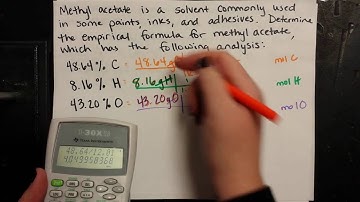 Methyl acetate is a solvent commonly used
in some paints, inks, and adhesives. Determine
the empirical formula for methyl acetate,
which has the following analysis:
48.64% C = 48.64 g mol C
8.16 % H = 8.16 g H 1 mol H
43.20 % O = 43.20 g O mol O
TI-30Xa
Texas Instruments
48.64/12.01
4.049958368